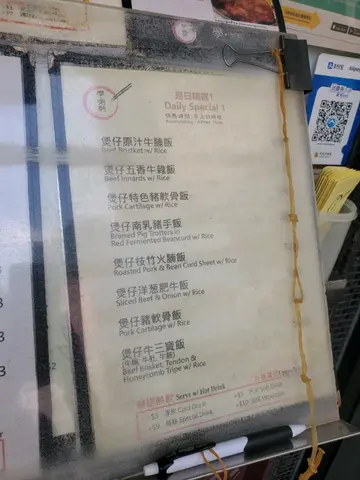 是日精選1
Daily Special 1
煲仔原汁牛腩飯
Beef Brisket w/ Rice
煲仔五香牛雜飯
Beef Innards w/ Rice
煲仔特色豬軟骨飯
Pork Cartilage w/ Rice
煲仔南乳豬手飯
Braised Pig Trotters in
Red Fermented Beancurd w/ Rice
煲仔枝竹火腩飯
Roasted Pork & Bean Curd Sheet w/ Rice
煲仔洋葱肥牛飯
Sliced Beef & Onion w/ Rice
煲仔豬軟骨飯
Pork Cartilage w/ Rice
煲仔牛三寶飯
(牛腩, 牛肚, 牛筋)
Beef Brisket, Tendon &
Honeycomb Tripe w/ Rice
Serve w/ Hot Drink
Cold Drink
Special Drink